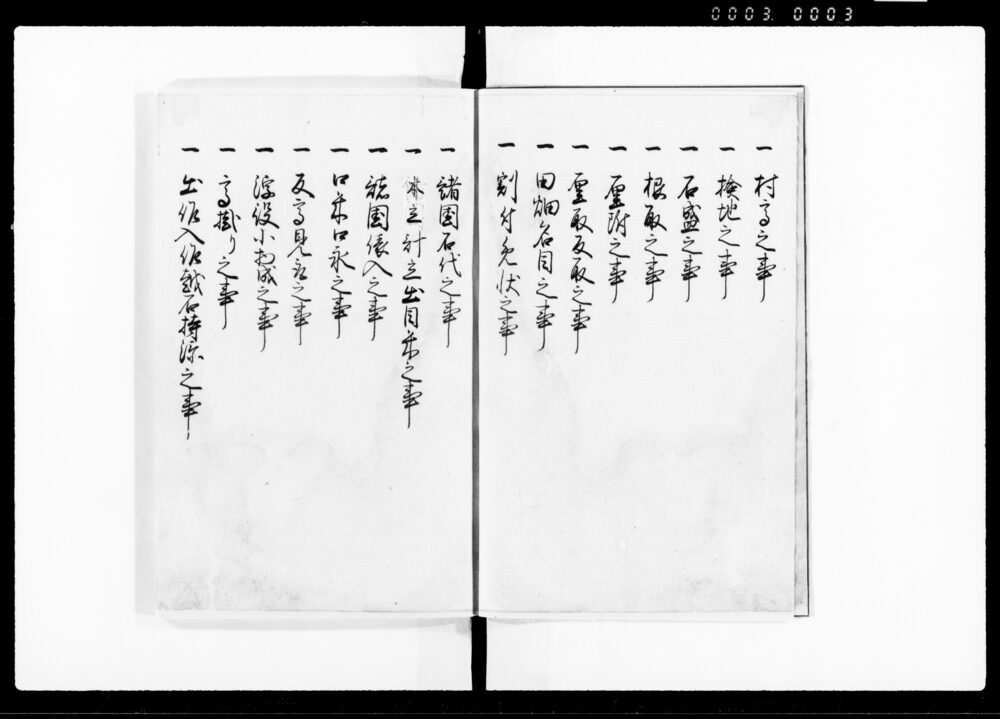 0003. 0003
一 村高之事
一 検地之事
一 石盛之事
一 根取之事
一 厘附之事
一 厘取反取之事
一 田畑名目之事
一 割付免状之事
一 諸国石代之事
一 立計立出目米之事
一 諸国俵入之事
一 口米口永之事
一 反高見取之事
一 浮役小物成之事
一 高掛り之事
一 出作入作越石持添之事